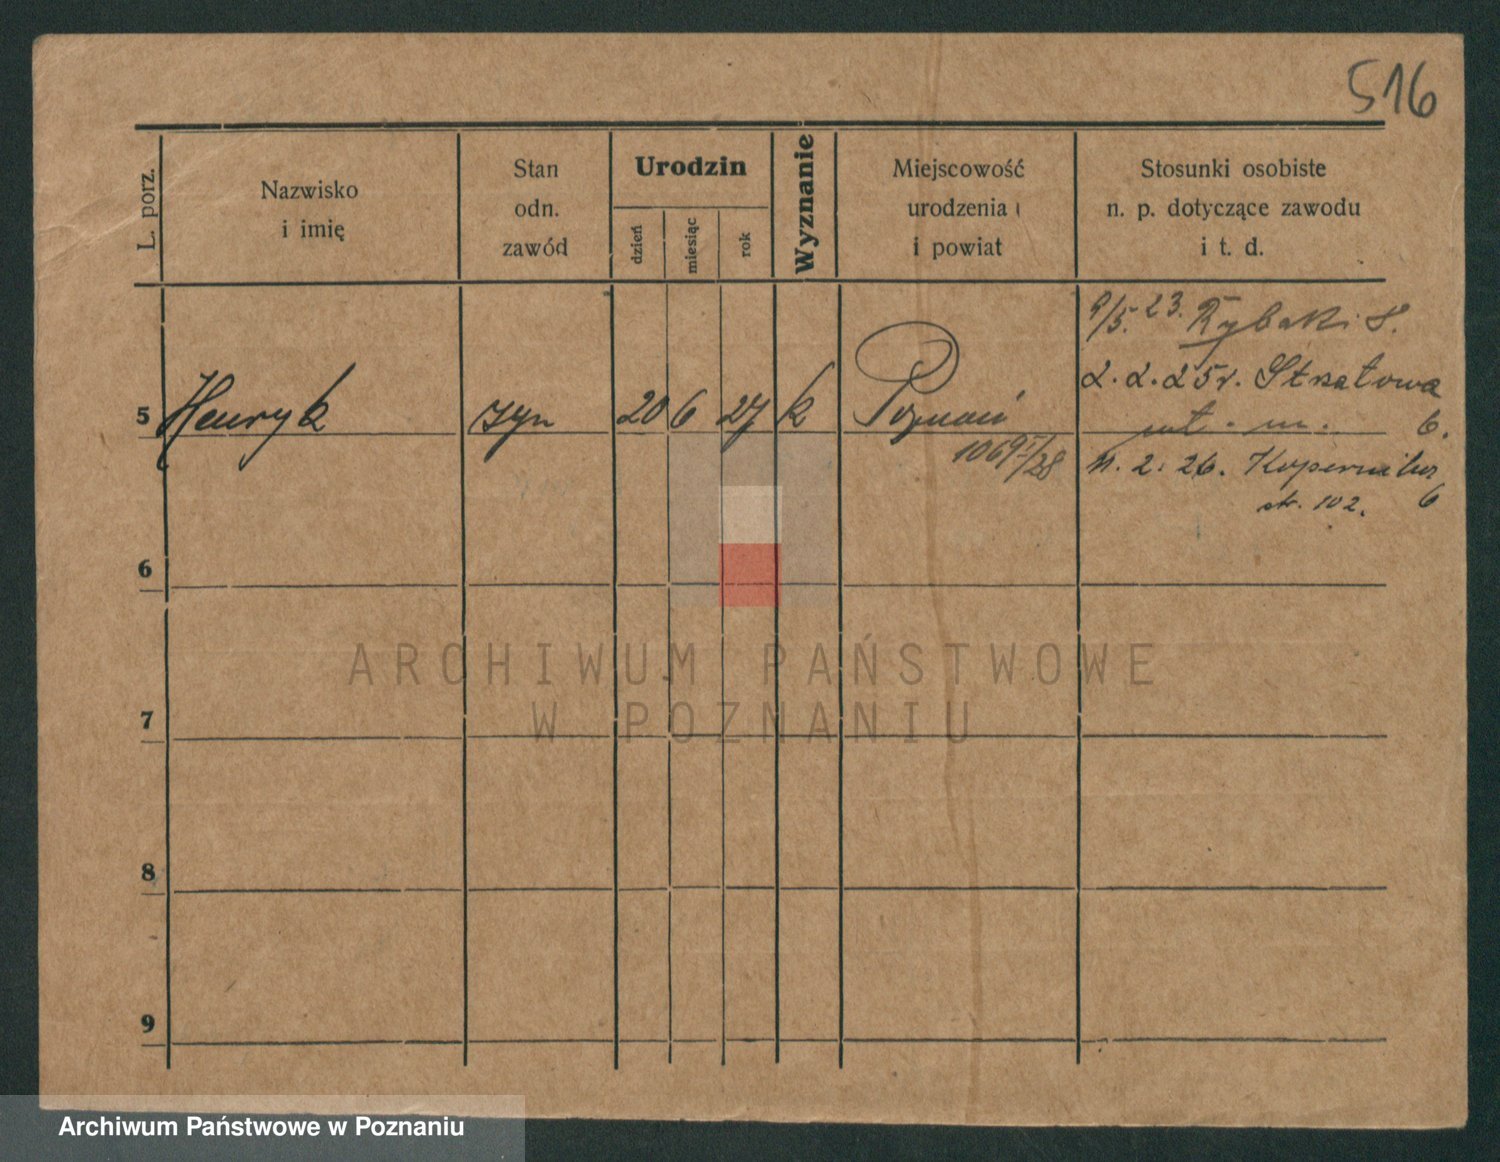 516
L. porz.
Nazwisko
i imię
Stan
odn.
zawód
Urodzin
dzień
miesiąc
rok
Wyznanie
Miejscowość
urodzenia
i powiat
Stosunki osobiste
n. p. dotyczące zawodu
i t. d.
9/5. 23. Rybaki 8.
2. 2. 25r. Strzałowa
6.
5 Henryk syn 20 6 27 k Poznań
1069 I/28
2. 26. Kopernika
str. 102. 6
6
7
8
9
ARCHIWUM PAŃSTWOWE
W POZNANIU
Archiwum Państwowe w Poznaniu